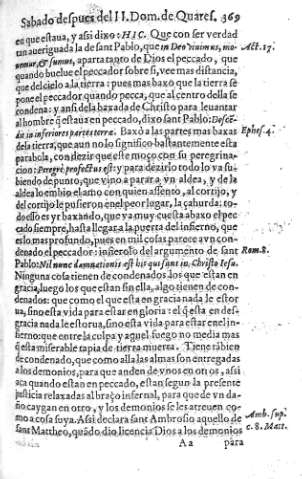 Sabado despues del II. Dom. de Quares. 369
en que estaua, y assi dixo: HIC. Que con ser verdad
tan aueriguada la de sant Pablo, que in Deo viuimus, mo-
uemur, & sumus, aparta tanto de Dios el peccado, que
quando buelue el peccador sobre si, vee mas distancia,
que del cielo a la tierra: pues mas baxo que la tierra se
pone el peccador quando pecca, que al centro della se
condena: y ansi de la baxada de Christo para leuantar
al hombre q̃ estaua en peccado, dixo sant Pablo: Descē-
dit in inferiores partes terræ. Baxò a las partes mas baxas
de la tierra; que aun no lo significo bastantemente esta
parabola, con dezir que este moço con su peregrina-
cion: Peregrè profectus est: y para dezirlo todo lo va su-
biendo de punto, que vino a parar a vn aldea, y de la
aldea lo embio el amo con quien assento, al cortijo, y
del cortijo le pusieron en el peor lugar, la çahurda: to-
do esso es yr baxando, que va muy cuesta abaxo el pec
cado siempre, hasta llegar a la puerta del infierno, que
es lo mas profundo, pues en mil cosas parece a vn con-
denado el peccador: infierolo del argumento de sant
Pablo: Nil nunc damnationis est his qui sunt in Christo Iesu.
Ninguna cosa tienen de condenados los que estan en
gracia, luego los que estan sin ella, algo tienen de con-
denados: que como el que esta en gracia nada le estor
ua, sino esta vida para estar en gloria: el q̃ esta en des-
gracia nada le estorua, sino esta vida para estar en el in-
fierno: que entre la culpa y aquel fuego no media mas
q̃ esta miserable tapia de tierra muerta. Tiene tãbien
de condenado, que como alla las almas son entregadas
a los demonios, para que anden de vnos en otros, assi
aca quando estan en peccado, estan segun la presente
justicia relaxadas al braço infernal, para que de vn da-
ño caygan en otro, y los demonios se les atreuen co-
mo a cosa suya. Assi declara sant Ambrosio aquello de
sant Mattheo, quãdo dio licencia Dios a los demonios
Aa para
Act. 17.
Ephes. 4.
Rom. 8.
Amb. sup.
c. 8. Matt.